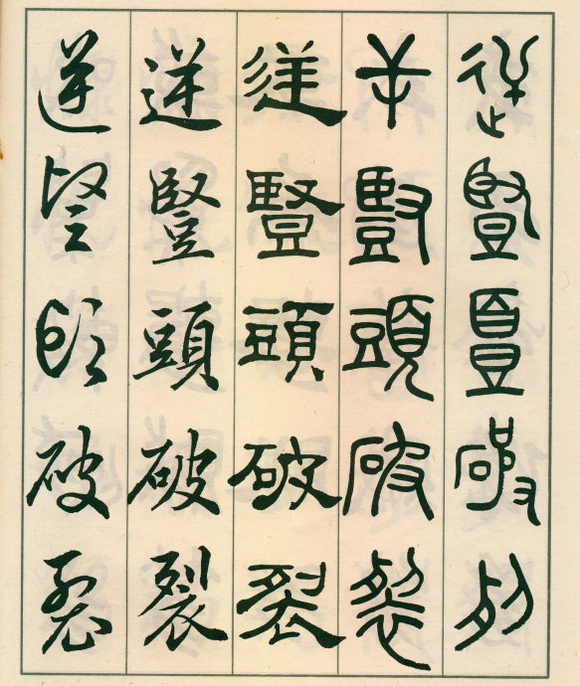 逆豎頭破列
屰豎頭破裂
逆豎頭破裂
逆豎頭破裂
逆豎頭破裂